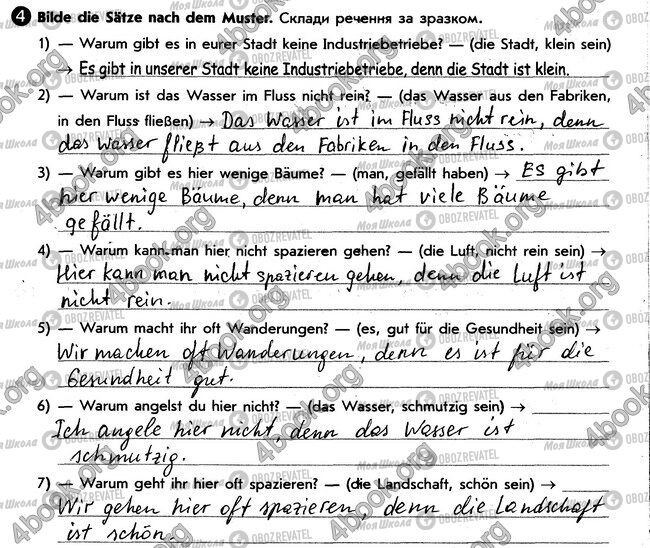 4 Bilde die Sätze nach dem Muster. Склади речення за зразком.
1) — Warum gibt es in eurer Stadt keine Industriebetriebe? — (die Stadt, klein sein)
→ Es gibt in unserer Stadt keine Industriebetriebe, denn die Stadt ist klein.
2) — Warum ist das Wasser im Fluss nicht rein? — (das Wasser aus den Fabriken,
in den Fluss fließen) → Das Wasser ist im Fluss nicht rein, denn
das Wasser fließt aus den Fabriken in den Fluss.
3) — Warum gibt es hier wenige Bäume? — (man, gefällt haben) → Es gibt
hier wenige Bäume, denn man hat viele Bäume
gefällt.
4) — Warum kann man hier nicht spazieren gehen? — (die Luft, nicht rein sein) →
Hier kann man nicht spazieren gehen, denn die Luft ist
nicht rein.
5) — Warum macht ihr oft Wanderungen? — (es, gut für die Gesundheit sein) →
Wir machen oft Wanderungen, denn es ist für die
Gesundheit gut.
6) — Warum angelst du hier nicht? — (das Wasser, schmutzig sein) →
Ich angele hier nicht, denn das Wasser ist
schmutzig.
7) — Warum geht ihr hier oft spazieren? — (die Landschaft, schön sein) →
Wir gehen hier oft spazieren, denn die Landschaft
ist schön.